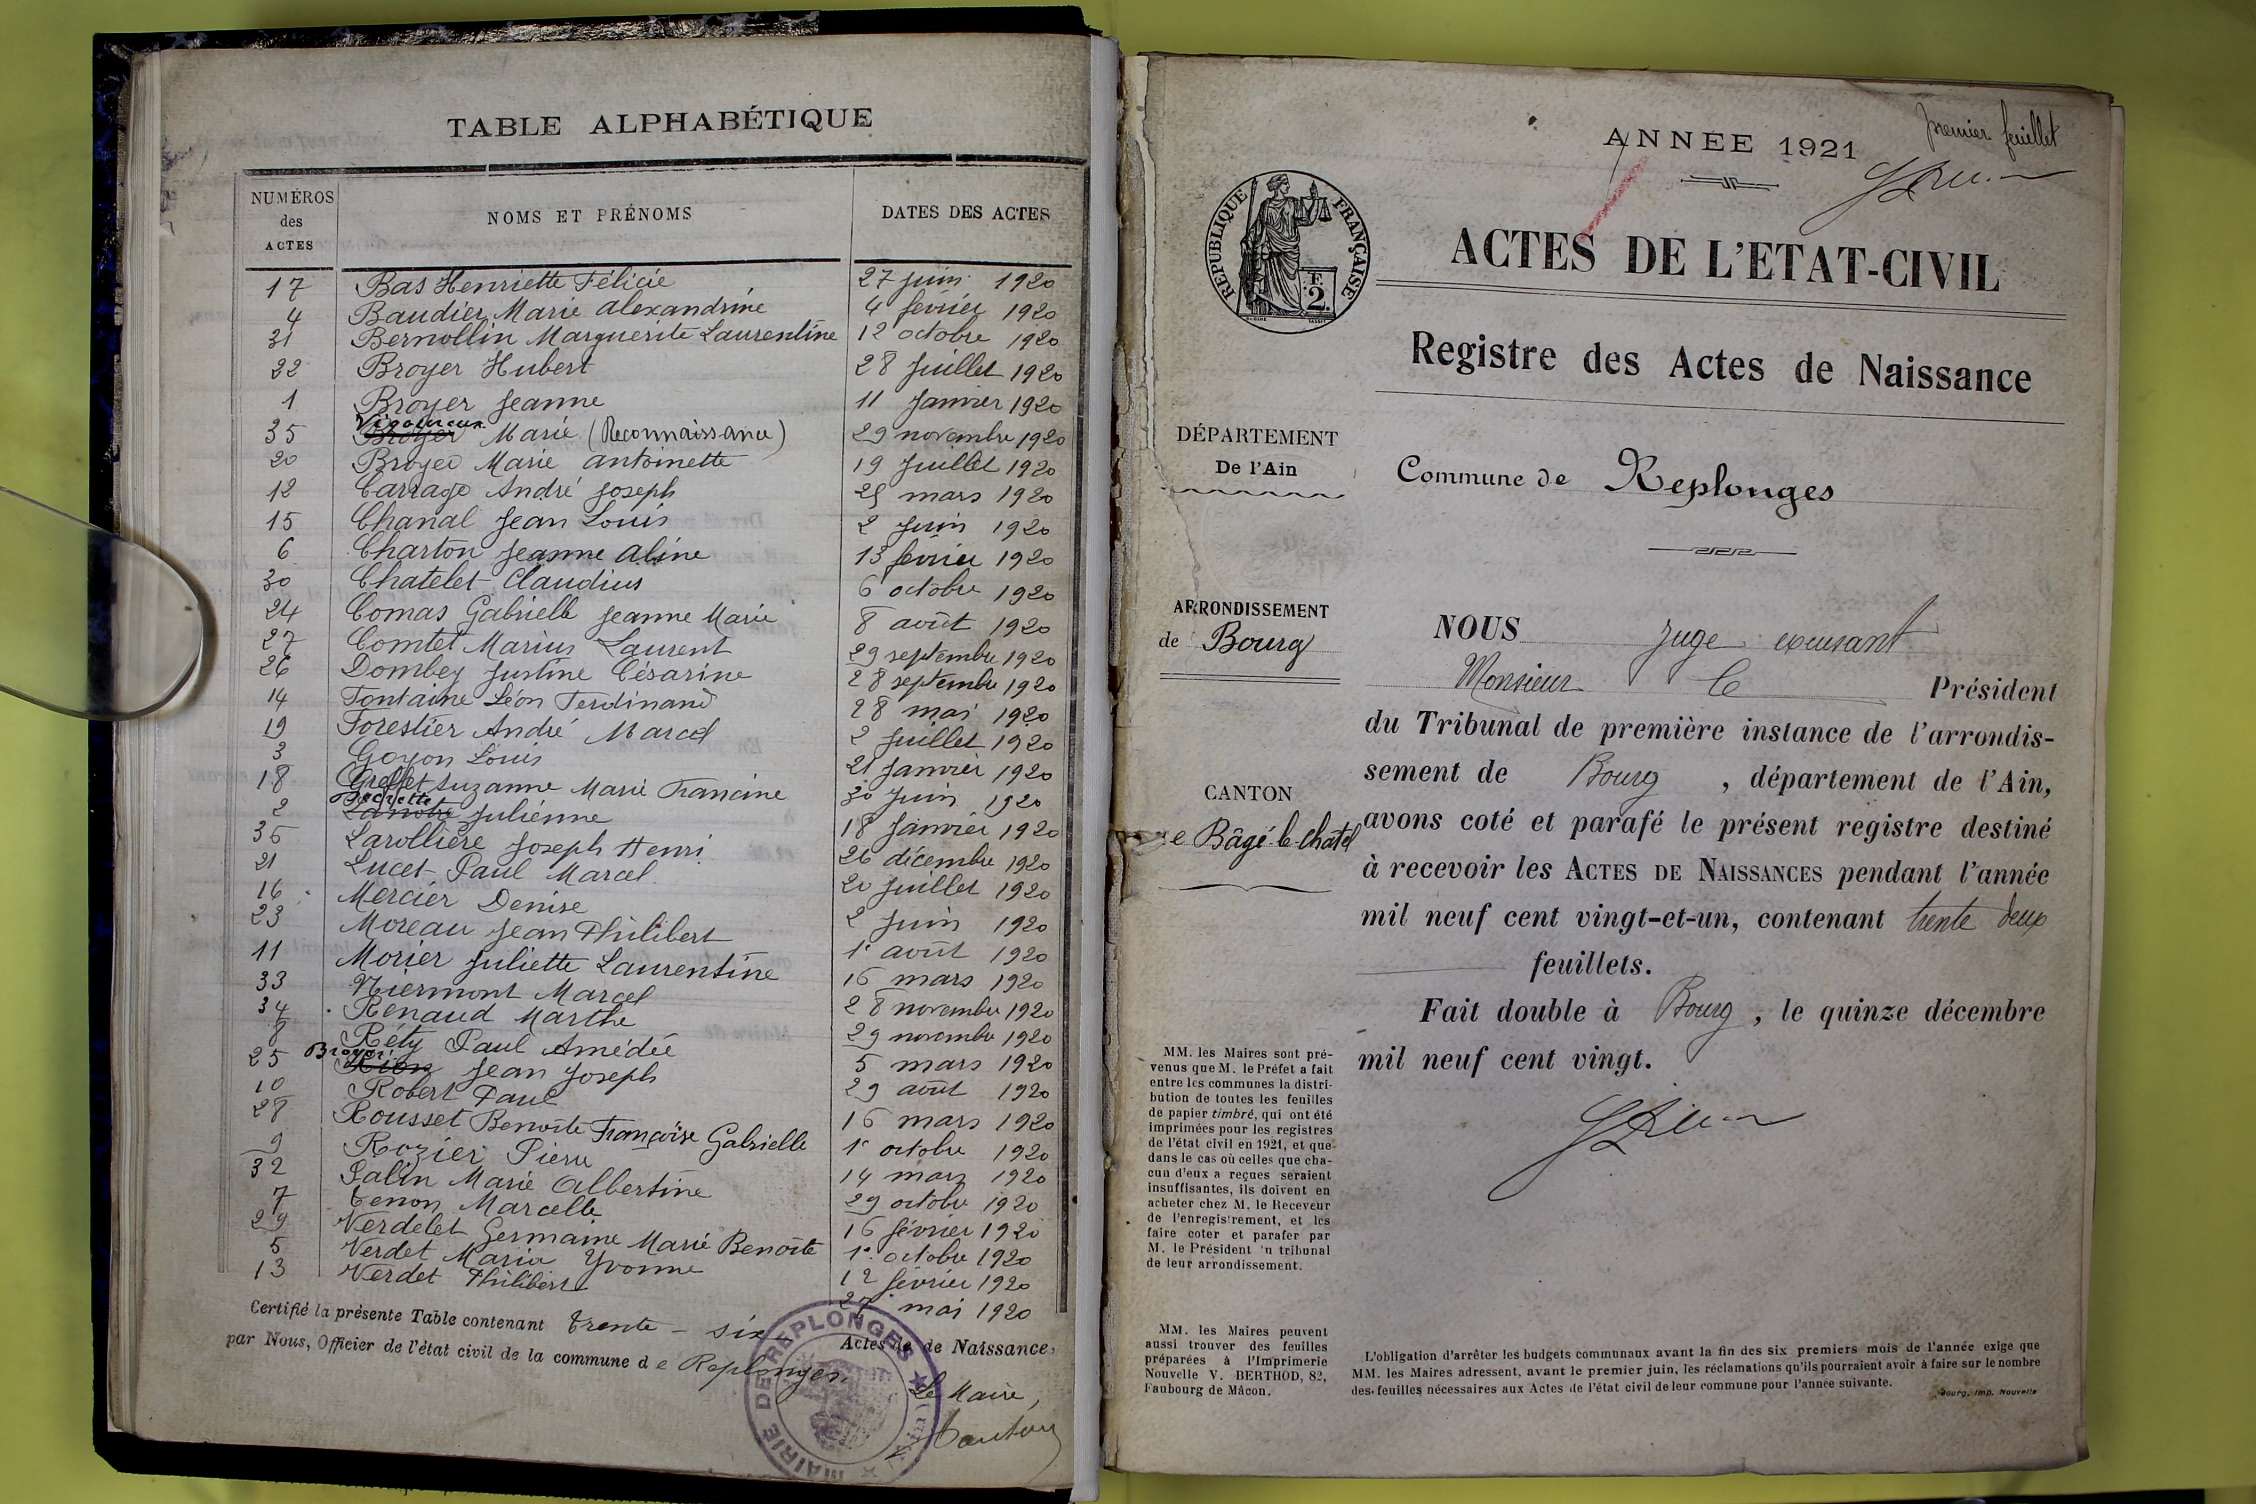 TABLE ALPHABÉTIQUE
NUMÉROS des ACTES NOMS ET PRÉNOMS DATES DES ACTES
17 Bas Henriette Félicie 27 juin 1920
4 Baudier Marie Alexandrine 4 février 1920
31 Bernollin Marguerite Laurentine 12 octobre 1920
22 Broyer Hubert 28 juillet 1920
1 Broyer Jeanne 11 janvier 1920
Vigoureux
35 Broyer Marie (Reconnaissance) 29 novembre 1920
20 Broyer Marie Antoinette 19 juillet 1920
12 Carrage André Joseph 25 mars 1920
15 Chanal Jean Louis 2 juin 1920
6 Charton Jeanne Aline 13 février 1920
30 Chatelet Claudius 6 octobre 1920
24 Comas Gabrielle Jeanne Marie 8 août 1920
27 Comtet Marius Laurent 29 septembre 1920
26 Dombey Justine Césarine 28 septembre 1920
14 Fontaine Léon Ferdinand 28 mai 1920
19 Forestier André Marcel 2 juillet 1920
3 Goyon Louis 21 janvier 1920
18 Greffet Suzanne Marie Francine 30 juin 1920
2 Julienne 18 janvier 1920
36 Larollière Joseph Henri 26 décembre 1920
21 Lucet Paul Marcel 20 juillet 1920
16 Mercier Denise 2 juin 1920
23 Moreau Jean Philibert 1er août 1920
11 Morier Juliette Laurentine 16 mars 1920
33 Niermont Marcel 28 novembre 1920
34 Renaud Marthe 29 novembre 1920
8 Réty Paul Amédée 5 mars 1920
Broyer
25 Jean Joseph 29 août 1920
10 Robert Paul 16 mars 1920
28 Rousset Benoite Françoise Gabrielle 1er octobre 1920
9 Rozier Pierre 14 mars 1920
32 Salin Marie Albertine 29 octobre 1920
7 Tenon Marcelle 16 février 1920
29 Verdelet Germaine Marie Benoîte 1er octobre 1920
5 Verdet Maria Yvonne 12 février 1920
13 Verdet Philibert 27 mai 1920
Certifié la présente Table contenant trente-six Actes de de Naissance,
par Nous, Officier de l'état civil de la commune de Replonges.
Le Maire,
MAIRIE DE REPLONGES
premier feuillet
ANNÉE 1921
RÉPUBLIQUE FRANÇAISE
F.
2
ACTES DE L'ETAT-CIVIL
Registre des Actes de Naissance
DÉPARTEMENT
De l'Ain
Commune de Replonges
ARRONDISSEMENT
de Bourg
CANTON
e Bâgé-le-Chatel
NOUS juge excusant
Monsieur le Président
du Tribunal de première instance de l'arrondis-
sement de Bourg, département de l'Ain,
avons coté et parafé le présent registre destiné
à recevoir les ACTES DE NAISSANCES pendant l'année
mil neuf cent vingt-et-un, contenant trente deux
feuillets.
Fait double à Bourg, le quinze décembre
mil neuf cent vingt.
MM. les Maires sont pré-
venus que M. le Préfet a fait
entre les communes la distri-
bution de toutes les feuilles
de papier timbré, qui ont été
imprimées pour les registres
de l'état civil en 1921, et que
dans le cas où celles que cha-
cun d'eux a reçues seraient
insuffisantes, ils doivent en
acheter chez M. le Receveur
de l'enregistrement, et les
faire coter et parafer par
M. le Président du tribunal
de leur arrondissement.
MM. les Maires peuvent
aussi trouver des feuilles
préparées à l'Imprimerie
Nouvelle V. BERTHOD, 82,
Faubourg de Mâcon.
L'obligation d'arrêter les budgets communaux avant la fin des six premiers mois de l'année exige que
MM. les Maires adressent, avant le premier juin, les réclamations qu'ils pourraient avoir à faire sur le nombre
des feuilles nécessaires aux Actes de l'état civil de leur commune pour l'année suivante.
Bourg, Imp. Nouvelle